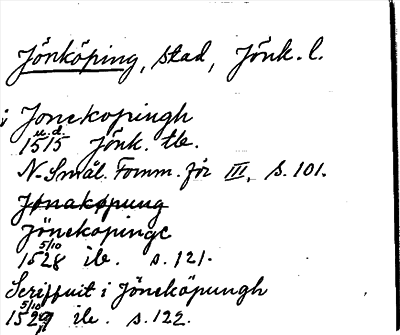 Jönköping, stad, Jönk. l.
i Jonekopingh
1515 u.d. Jönk. tb.
N. Smål. Fornm. för III, s. 101.
Jönakøpung
Jöneköpinge
15 5/10 28 ib. s. 121.
Scriffuit i Jöneköpungh
15 5/10 29 ib. s. 122.